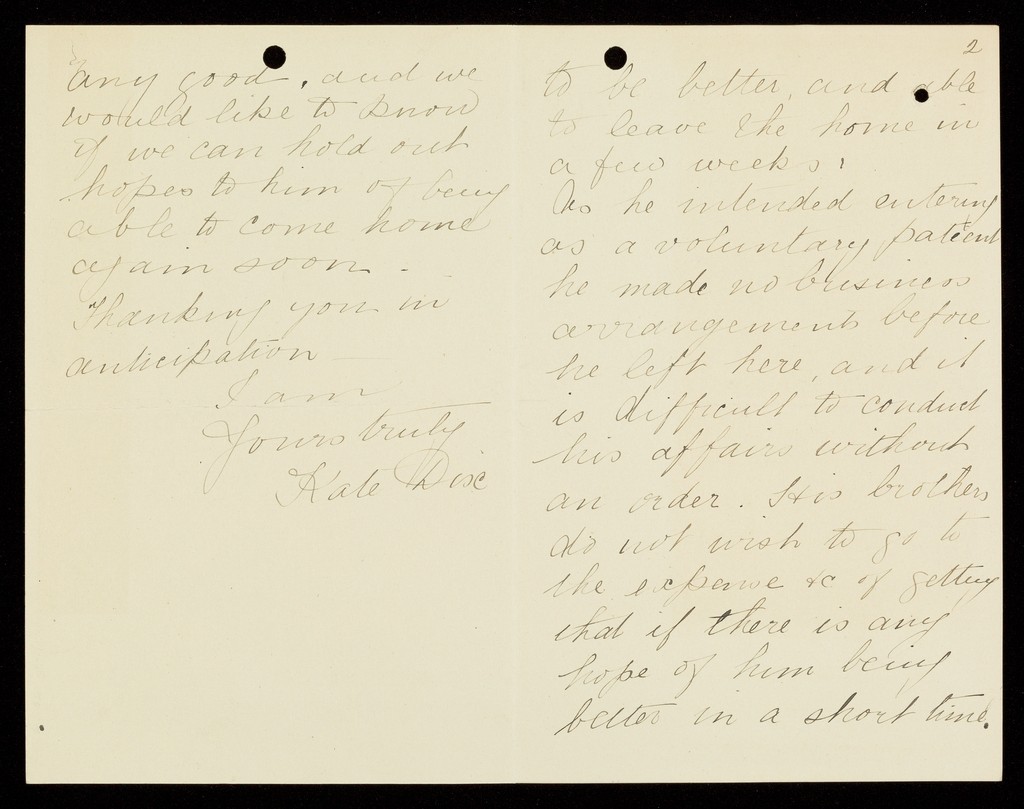 any good, and we
would like to know
if we can hold out
hopes to him of being
able to come home
again soon -
Thanking you in
anticipation
I am
Yours truly
Kate Disc
2
to be better, and able
to leave the home in
a few weeks.
As he intended entering
as a voluntary patient
he made no business
arrangements before
he left here, and it
is difficult to conduct
his affairs without
an order. His brothers
do not wish to go to
the expense &c of getting
that if there is any
hope of him being
better in a short time.